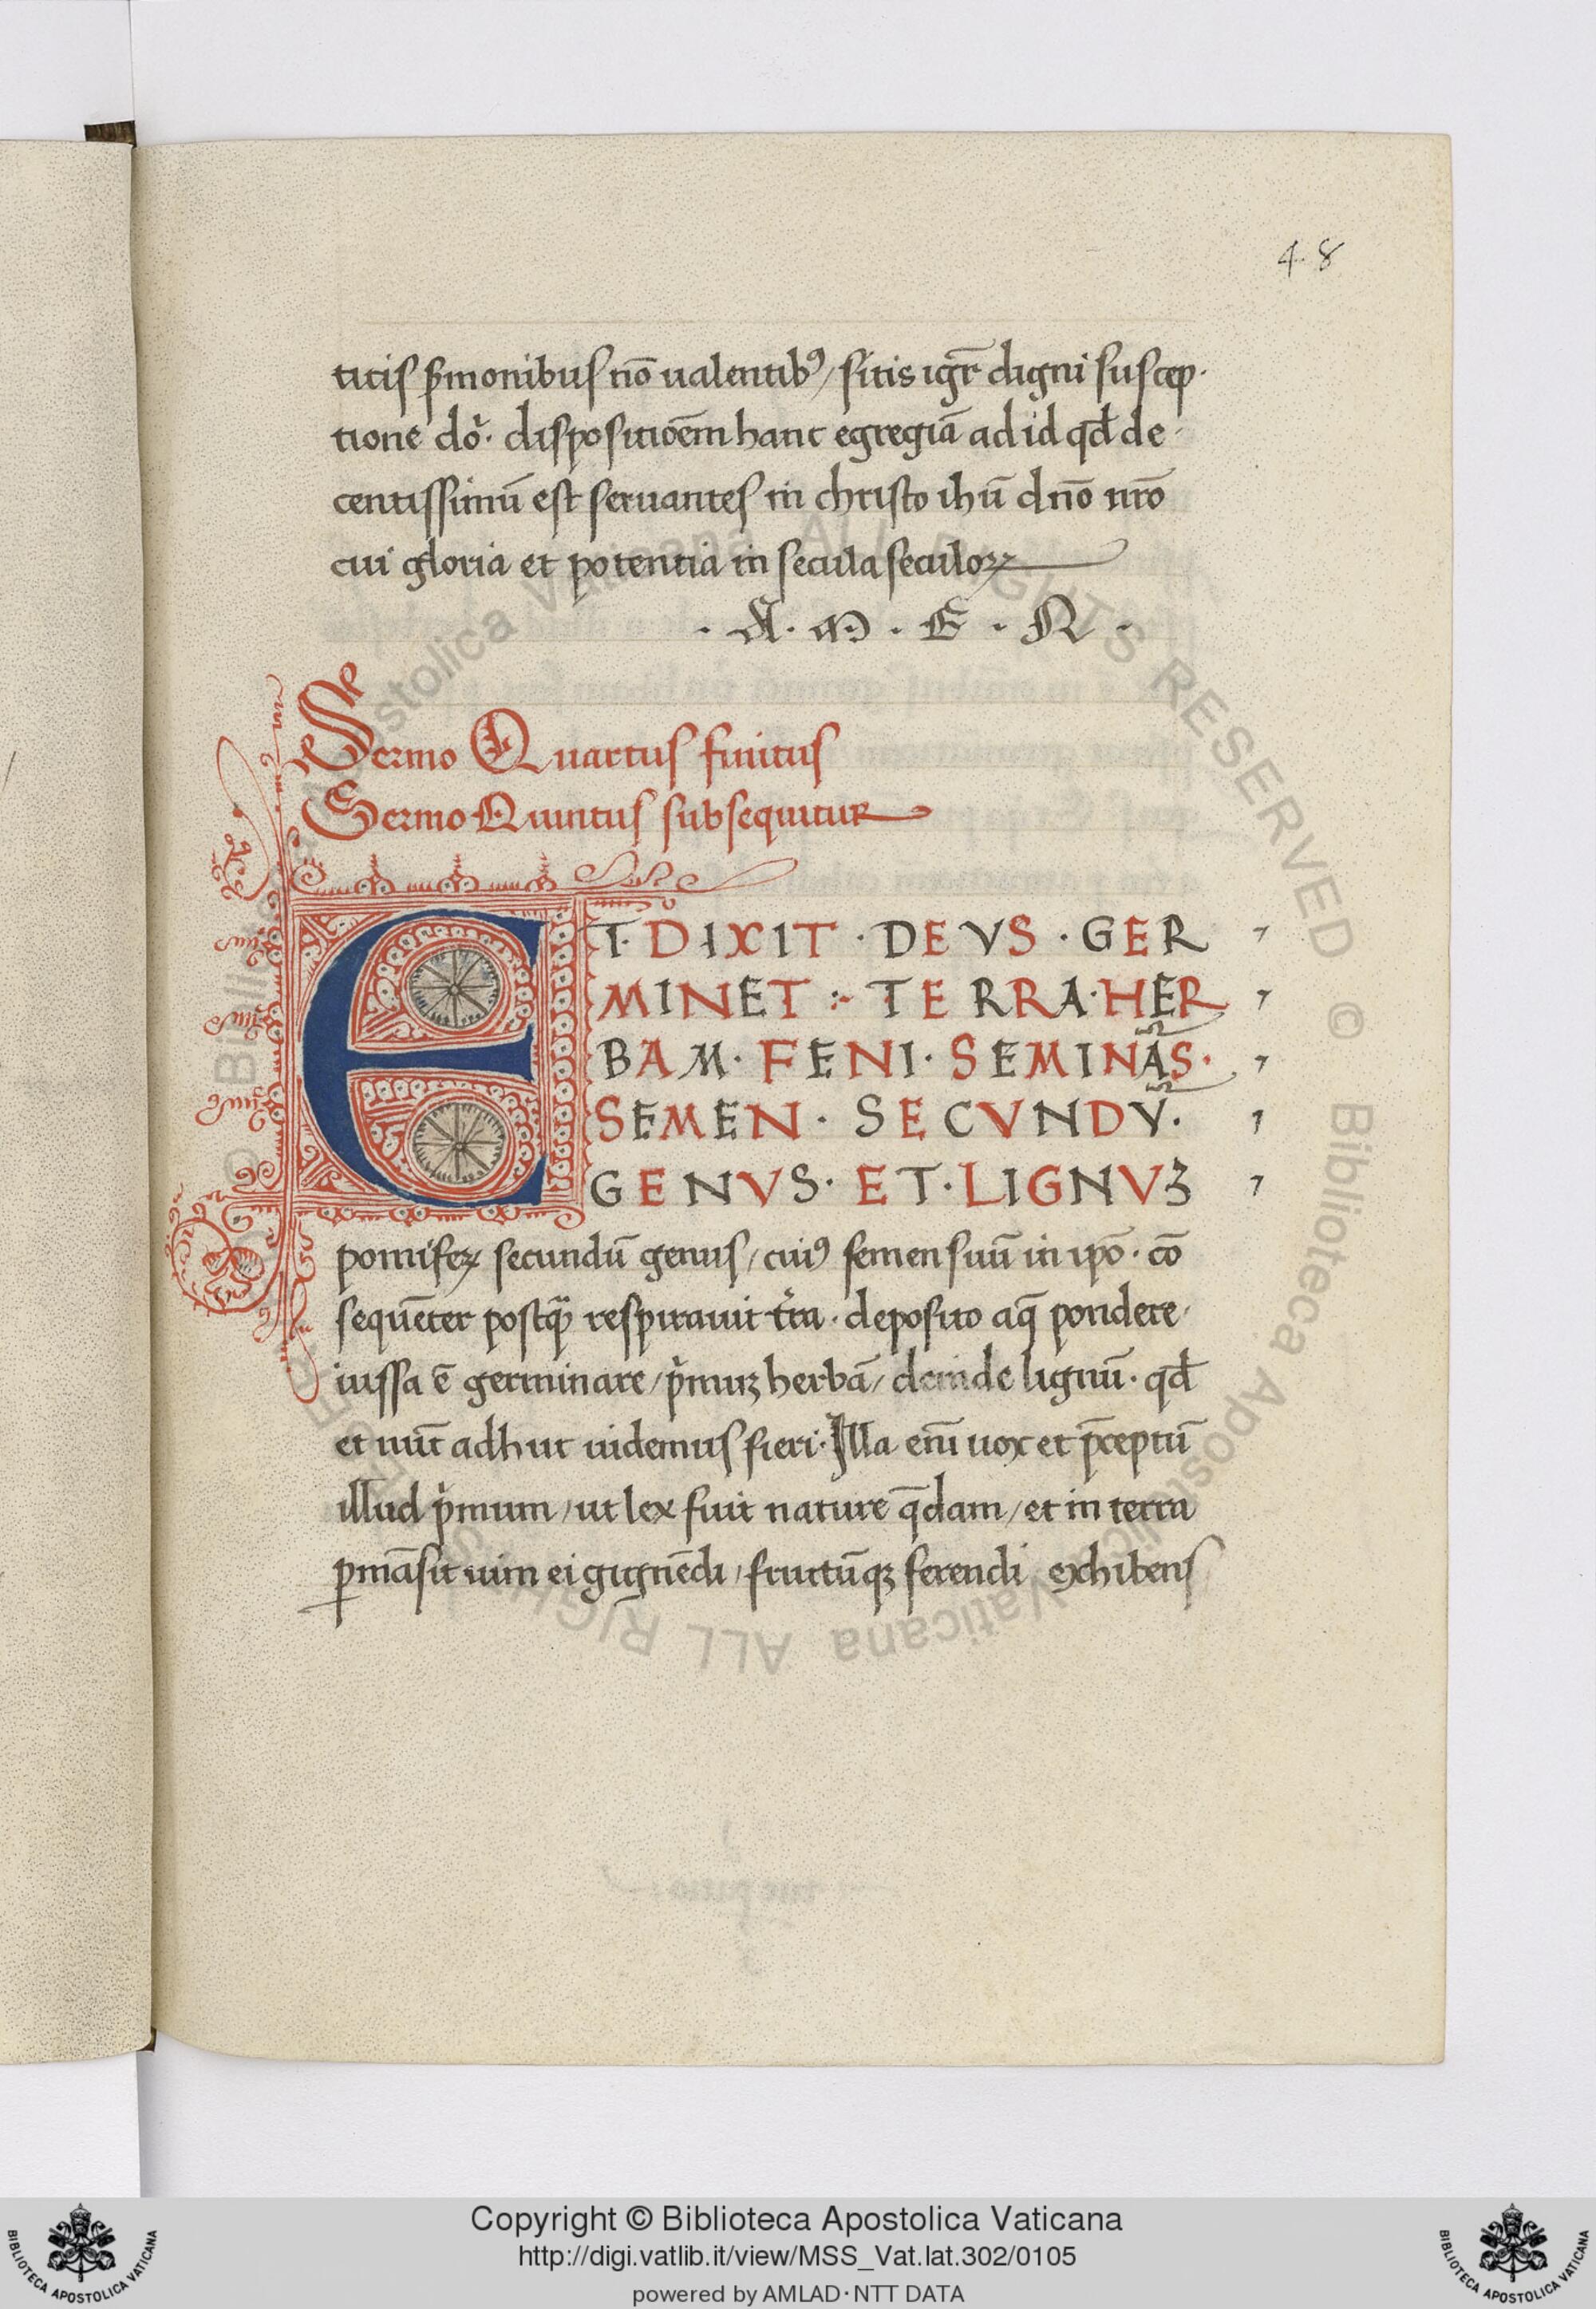 48
titis p̄monibus nō ualentibꝰ / sitis igr̄ digni suscep·
tione dõ· dispositiōem hanc egregiā ad id qđ de·
centissimū est seruantes in christo ihū dnō nrō
cui gloria et potentia in secula seculoꝝ
· A · M · E · N ·
Sermo Quartus finitus
Sermo Quintus subsequitur
ET· DIXIT · DEVS · GER
MINET :· TERRA · HER
BAM · FENI · SEMINÃS ·
SEMEN · SECVNDṼ ·
GENVS · ET · LIGNVꝫ
pomifeꝝ secundū genus / cuiꝰ semen suū in ipō · cō
sequēter postq̃ respirauit t̃ra · deposito aq̄ pondere /
iussa ē germinare / p̃muꝫ herbā / deinde lignū · qđ
et nūc adhuc uidemus fieri · Illa enī uox et p̄ceptū
illud p̃mum / ut lex fuit nature q̄dam / et in terra
ꝑmāsit uim ei gignēdi / fructūqꝫ ferendi exhibens
© Biblioteca Apostolica Vaticana ALL RIGHTS RESERVED
Copyright © Biblioteca Apostolica Vaticana
http://digi.vatlib.it/view/MSS_Vat.lat.302/0105
powered by AMLAD · NTT DATA
BIBLIOTECA APOSTOLICA VATICANA
BIBLIOTECA APOSTOLICA VATICANA